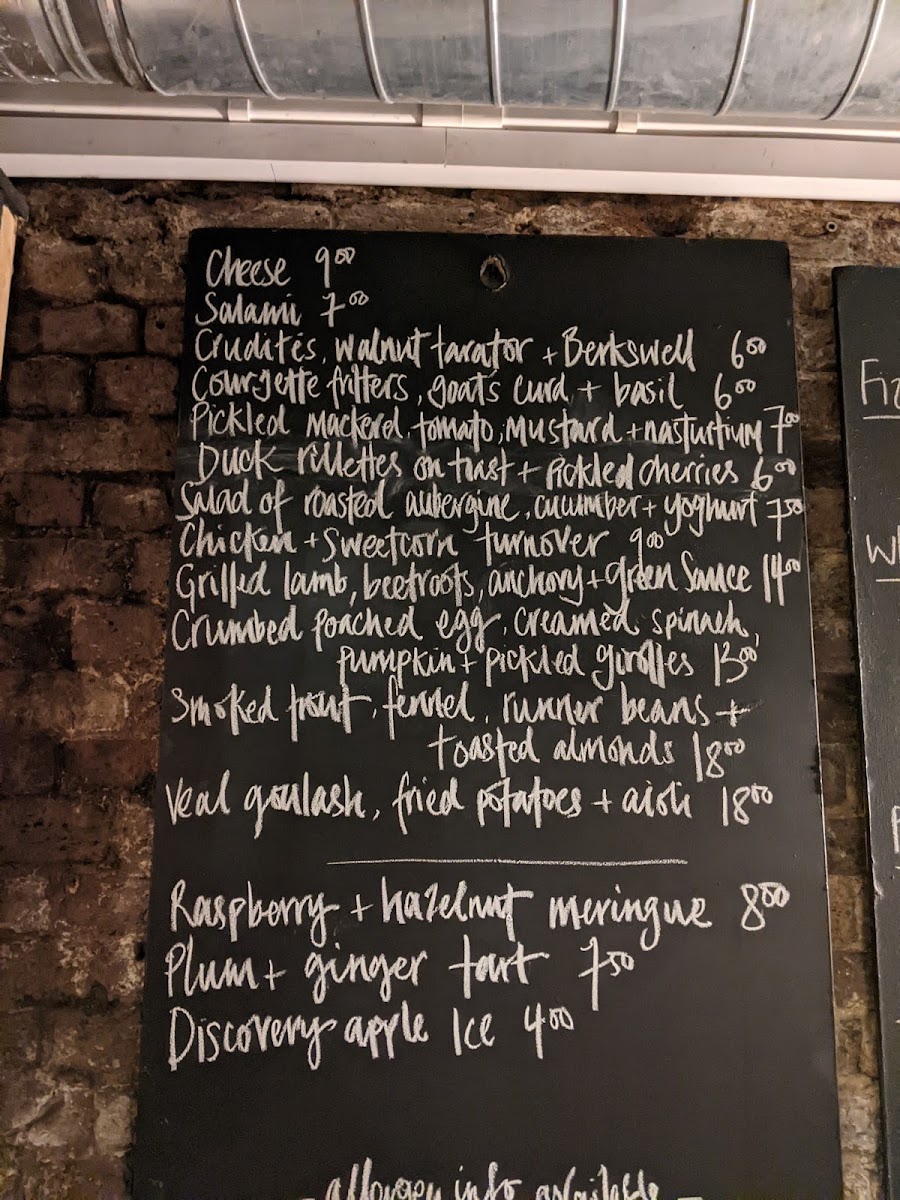 Cheese 9.00
Salami 7.00
Crudités, walnut tarator + Berkswell 6.00
Courgette fritters, goats curd + basil 6.00
Pickled mackerel, tomato, mustard + nasturtium 7.00
Duck rillettes on toast + pickled cherries 6.00
Salad of roasted aubergine, cucumber + yoghurt 7.50
Chicken + Sweetcorn turnover 9.00
Grilled lamb, beetroots, anchovy + green Sauce 14.00
Crumbed poached egg, creamed spinach,
pumpkin + pickled girolles 13.00
Smoked trout, fennel, runner beans +
toasted almonds 18.00
Veal goulash, fried potatoes + aioli 18.00
Raspberry + hazelnut meringue 8.00
Plum + ginger tart 7.50
Discovery apple Ice 4.00
- allergy info available -
Fiz
Wh